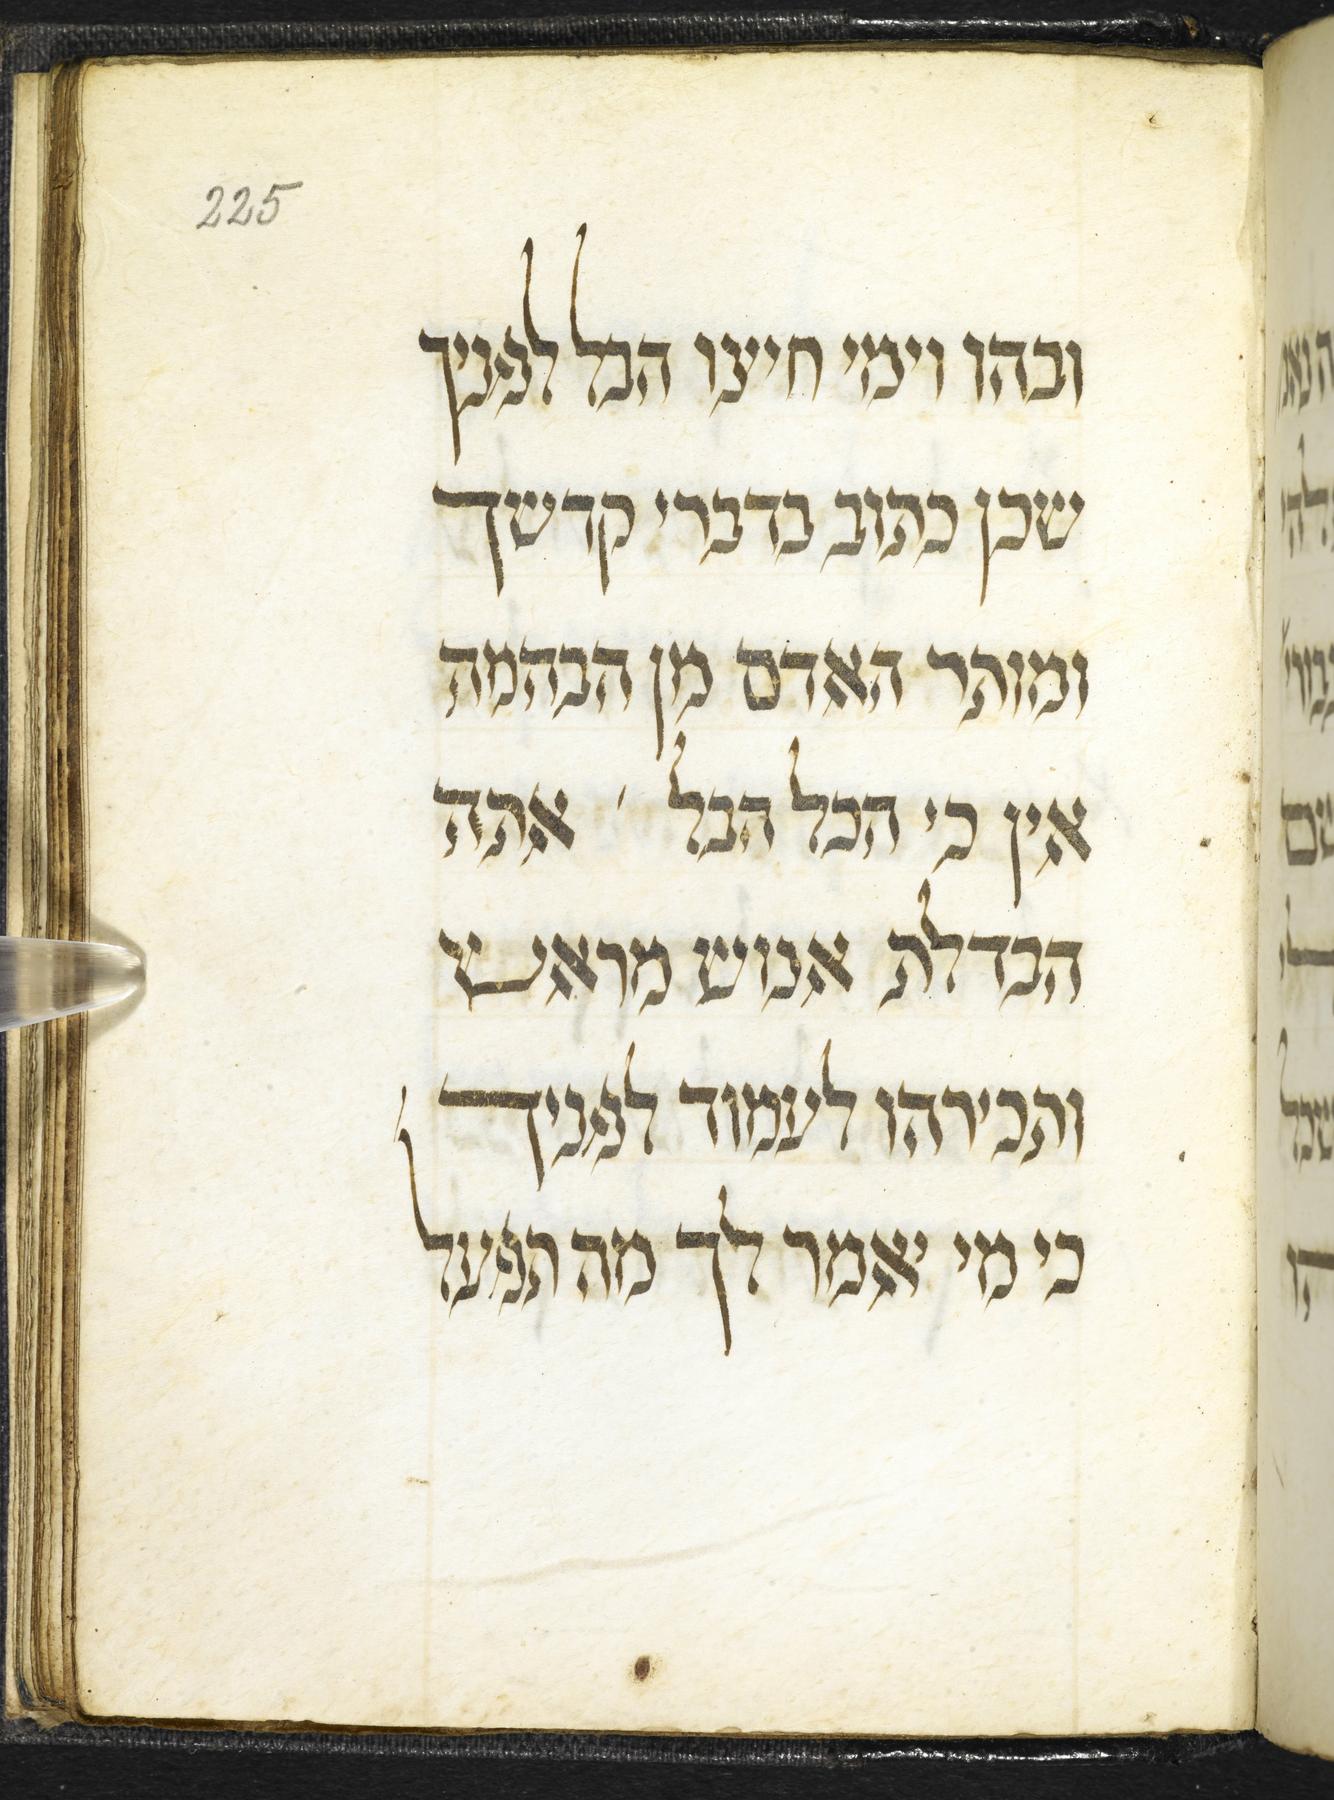 225
ובהו וימי חיינו הבל לפניך
שכן כתוב בדברי קדשך
ומותר האדם מן הבהמה
אין כי הכל הבל ׳ אתה
הבדלת אנוש מראש
ותכירהו לעמוד לפניך
כי מי יאמר לך מה תפעל